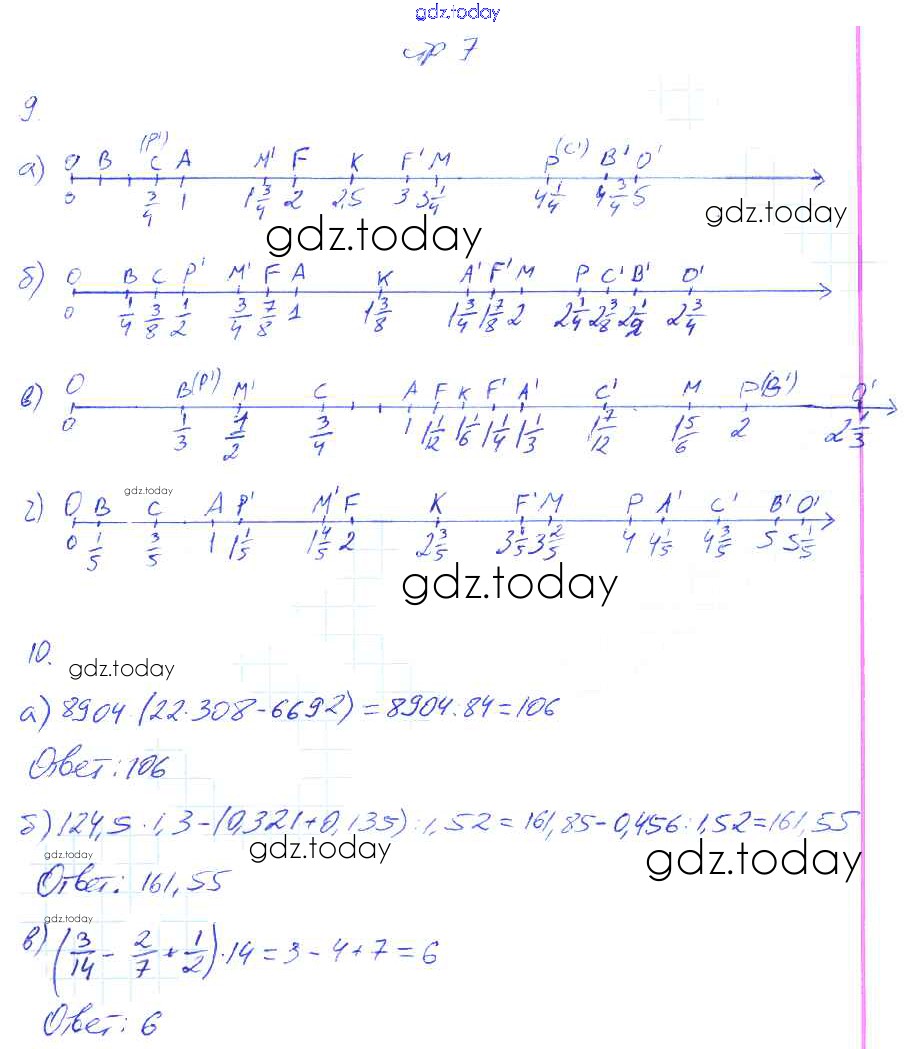 gdz.today
стр 7
9.
(P')
а) O B C A M' F K F' M P (C') B' O'
0 3/4 1 1 3/4 2 2,5 3 3 1/4 4 1/4 4 3/4 5
gdz.today
gdz.today
б) O B C P' M' F A K A' F' M P C' B' O'
0 1/4 3/8 1/2 3/4 7/8 1 1 3/8 1 3/4 1 7/8 2 2 1/4 2 3/8 2 1/2 2 3/4
в) O B(P') M' C A F K F' A' C' M P(B') O'
0 1/3 1/2 3/4 1 1 1/12 1 1/6 1 1/4 1 1/3 1 7/12 1 5/6 2 2 1/3
gdz.today
г) O B C A P' M' F K F' M P A' C' B' O'
0 1/5 3/5 1 1 1/5 1 4/5 2 2 3/5 3 1/5 3 2/5 4 4 1/5 4 3/5 5 5 1/5
gdz.today
10.
gdz.today
а) 8904:(22·308-6692) = 8904:84 = 106
Ответ: 106
б) 124,5·1,3-(0,321+0,135):1,52 = 161,85-0,456:1,52 = 161,55
gdz.today
gdz.today
gdz.today
Ответ: 161,55
gdz.today
в) (3/14 - 2/7 + 1/2)·14 = 3-4+7 = 6
Ответ: 6